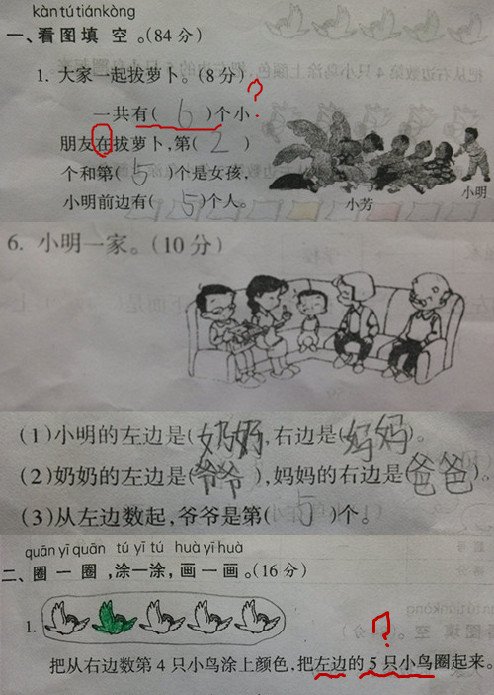 kàn tú tián kòng
一、看图填 空。(84 分)
1. 大家一起拔萝卜。(8 分)
?
一共有( 6 )个小
朋友在拔萝卜,第( 2 )
个和第( 5 )个是女孩,
小明前边有( 5 )个人。
小芳
小明
6. 小明一家。(10 分)
(1)小明的左边是(奶奶),右边是(妈妈)。
(2)奶奶的左边是(爷爷),妈妈的右边是(爸爸)。
(3)从左边数起,爷爷是第( 5 )个。
quān yī quān tú yī tú huà yī huà
二、圈 一 圈 ,涂一涂,画 一 画。(16 分)
1.
?
把从右边数第 4 只小鸟涂上颜色,把左边的 5 只小鸟圈起来。